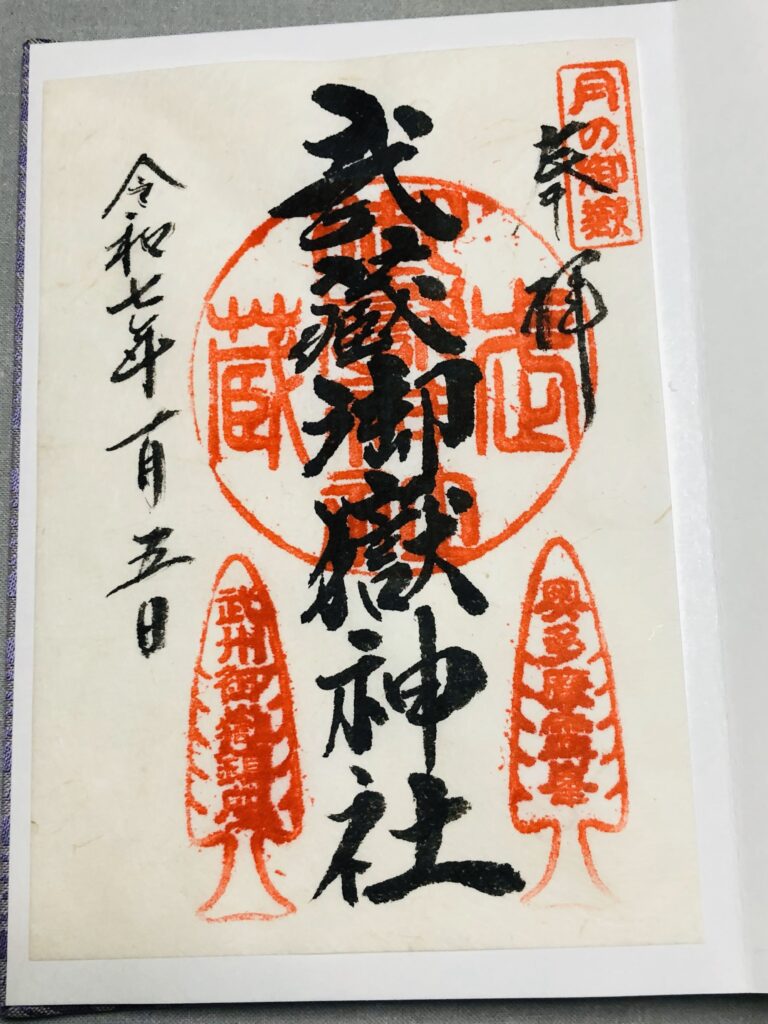 月の御嶽
奉拝
武蔵御嶽神社
武
蔵
奥多摩霊峯
武州御
令和七年一月五日